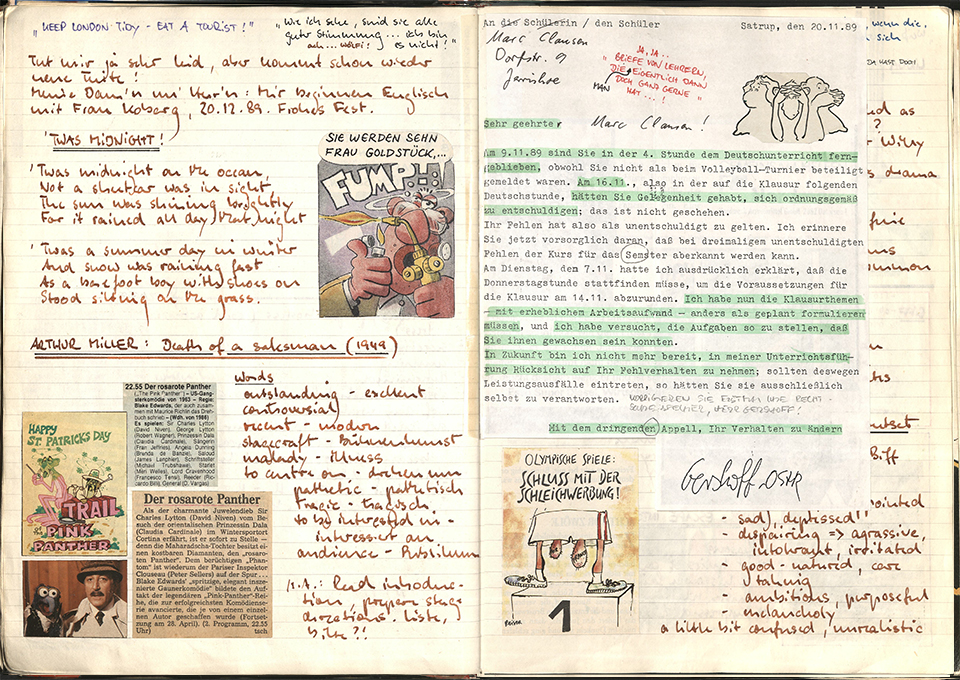 "KEEP LONDON TIDY - EAT A TOURIST!"
"Wie ich sehe, sind sie alle
guter Stimmung... Ich bin
es nicht!"
Tut mir ja sehr leid, aber kommt schon wieder
neue Tinte!
Mit Frau Koberg, 20.12.89. Frohes Fest.
'TWAS MIDNIGHT!
'Twas midnight on the ocean,
Not a streetcar was in sight,
The sun was shining brightly
For it rained all day that night
'Twas a summer day in winter
And snow was raining fast
As a barefoot boy with shoes on
Stood sitting on the grass.
SIE WERDEN SEHN
FRAU GOLDSTÜCK,...
FUMP!!
ARTHUR MILLER: Death of a salesman (1949)
22.55 Der rosarote Panther
("The Pink Panther") – US-Gang-
sterkomödie von 1963 – Regie:
Blake Edwards, der auch zusam-
men mit Maurice Richlin das Dreh-
buch schrieb – (Wdh. von 1986)
Es spielen: Sir Charles Lytton
(David Niven), George Lytton
(Robert Wagner), Prinzessin Dala
(Claudia Cardinale), Sängerin
(Fran Jeffries), Angela Dunning
(Brenda de Banzie), Saloud
(James Lanphier), Schriftsteller
(Michael Trubshawe), Starlet
(Meri Welles), Lord Cravenhood
(Francesco Tensi), Reeder (Ric-
cardo Billi), General (D. Vargas)
HAPPY
ST. PATRICKS DAY
TRAIL
OF THE
PINK
PANTHER
Der rosarote Panther
Als der charmante Juwelendieb Sir
Charles Lytton (David Niven) vom Be-
such der orientalischen Prinzessin Dala
(Claudia Cardinale) im Wintersportort
Cortina erfährt, ist er sofort zu Stelle –
denn die Maharadscha-Tochter besitzt ei-
nen kostbaren Diamanten, den „rosaro-
ten Panther". Dem berüchtigten „Phan-
tom" ist wiederum der Pariser Inspektor
Clouseau (Peter Sellers) auf der Spur...
Blake Edwards' „spritzige, elegant insze-
nierte Gaunerkomödie" bildete den Auf-
takt der legendären „Pink-Panther"-Rei-
he, die zur erfolgreichsten Komödiense-
rie avancierte, die je von einem einzel-
nen Autor geschaffen wurde (Fortset-
zung am 28. April). (2. Programm, 22.55
Uhr) tsch
Words
outstanding - excellent
controversial
recent - modern
stagecraft - Bühnenkunst
malady - illness
to centre on - drehen um
pathetic - pathetisch
tragic - tragisch
to be interested in -
interessiert an
audience - Publikum
H.A.: Read introduc-
tion, prepare stage
decorations. Liste,
bitte?!
An die Schülerin / den Schüler
Satrup, den 20.11.89
Marc Clausen
Dorfstr. 9
Jarrishoe
JA, JA..
"BRIEFE VON LEHRERN,
DIE EIGENTLICH DANN
MAN
DOCH GANZ GERNE
HAT...!"
Sehr geehrter Marc Clausen!
Am 9.11.89 sind Sie in der 4. Stunde dem Deutschunterricht fern-
geblieben, obwohl Sie nicht als beim Volleyball-Turnier beteiligt
gemeldet waren. Am 16.11., also in der auf die Klausur folgenden
Deutschstunde, hätten Sie Gelegenheit gehabt, sich ordnungsgemäß
zu entschuldigen; das ist nicht geschehen.
Ihr Fehlen hat also als unentschuldigt zu gelten. Ich erinnere
Sie jetzt vorsorglich daran, daß bei dreimaligem unentschuldigten
Fehlen der Kurs für das Semster aberkannt werden kann.
Am Dienstag, dem 7.11. hatte ich ausdrücklich erklärt, daß die
Donnerstagstunde stattfinden müsse, um die Voraussetzungen für
die Klausur am 14.11. abzurunden. Ich habe nun die Klausurthemen
– mit erheblichem Arbeitsaufwand – anders als geplant formulieren
müssen, und ich habe versucht, die Aufgaben so zu stellen, daß
Sie ihnen gewachsen sein konnten.
In Zukunft bin ich nicht mehr bereit, in meiner Unterrichtsfüh-
rung Rücksicht auf Ihr Fehlverhalten zu nehmen; sollten deswegen
Leistungsausfälle eintreten, so hätten Sie sie ausschließlich
selbst zu verantworten.
KORRIGIEREN SIE ERSTMAL IHRE RECHT-
SCHREIBFEHLER, HERR GERSHOFF!
Mit dem dringenden Appell, Ihr Verhalten zu ändern
OLYMPISCHE SPIELE:
SCHLUSS MIT DER
SCHLEICHWERBUNG!
1
- sad, depressed
- dispairing => agrassive,
intolerant, irritated
- good-natured, care
taking
- ambitious, purposeful
- melancholy
a little bit confused, unrealistic